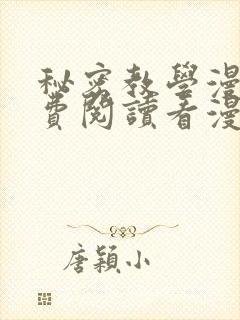 秘密教學漫
費閱讀看漫
唐穎小